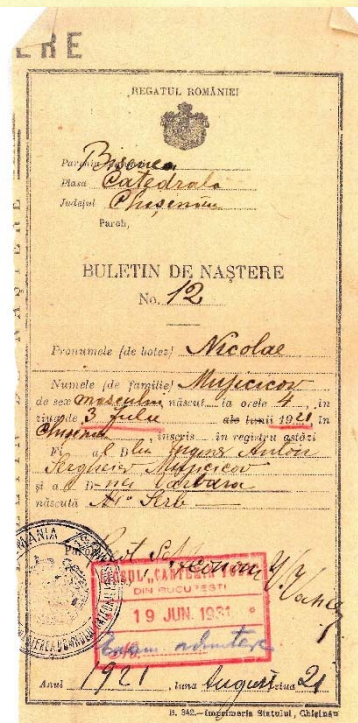 ERE
REGATUL ROMÂNIEI
Parohia Biserica
Plasa Catedrala
Județul Chișinău
Paroh,
BULETIN DE NAȘTERE
No. 12
Pronumele (de botez) Nicolae
Numele (de familie) Mujicicov
de sex masculin născut la orele 4 în
ziua de 3 Julie ale lunii 1921 în
Chișinău, înscris în registru astăzi
Fiu al D-lui Anton
Serghiev Mujicicov
și a D-nei Varvara
născută Sârb
DIN BUCUREȘTI
19 JUN. 1931
Examen admitere
Anul 1921, luna August ziua 21
B. 342.—Imprimeria Statului, Chișinău